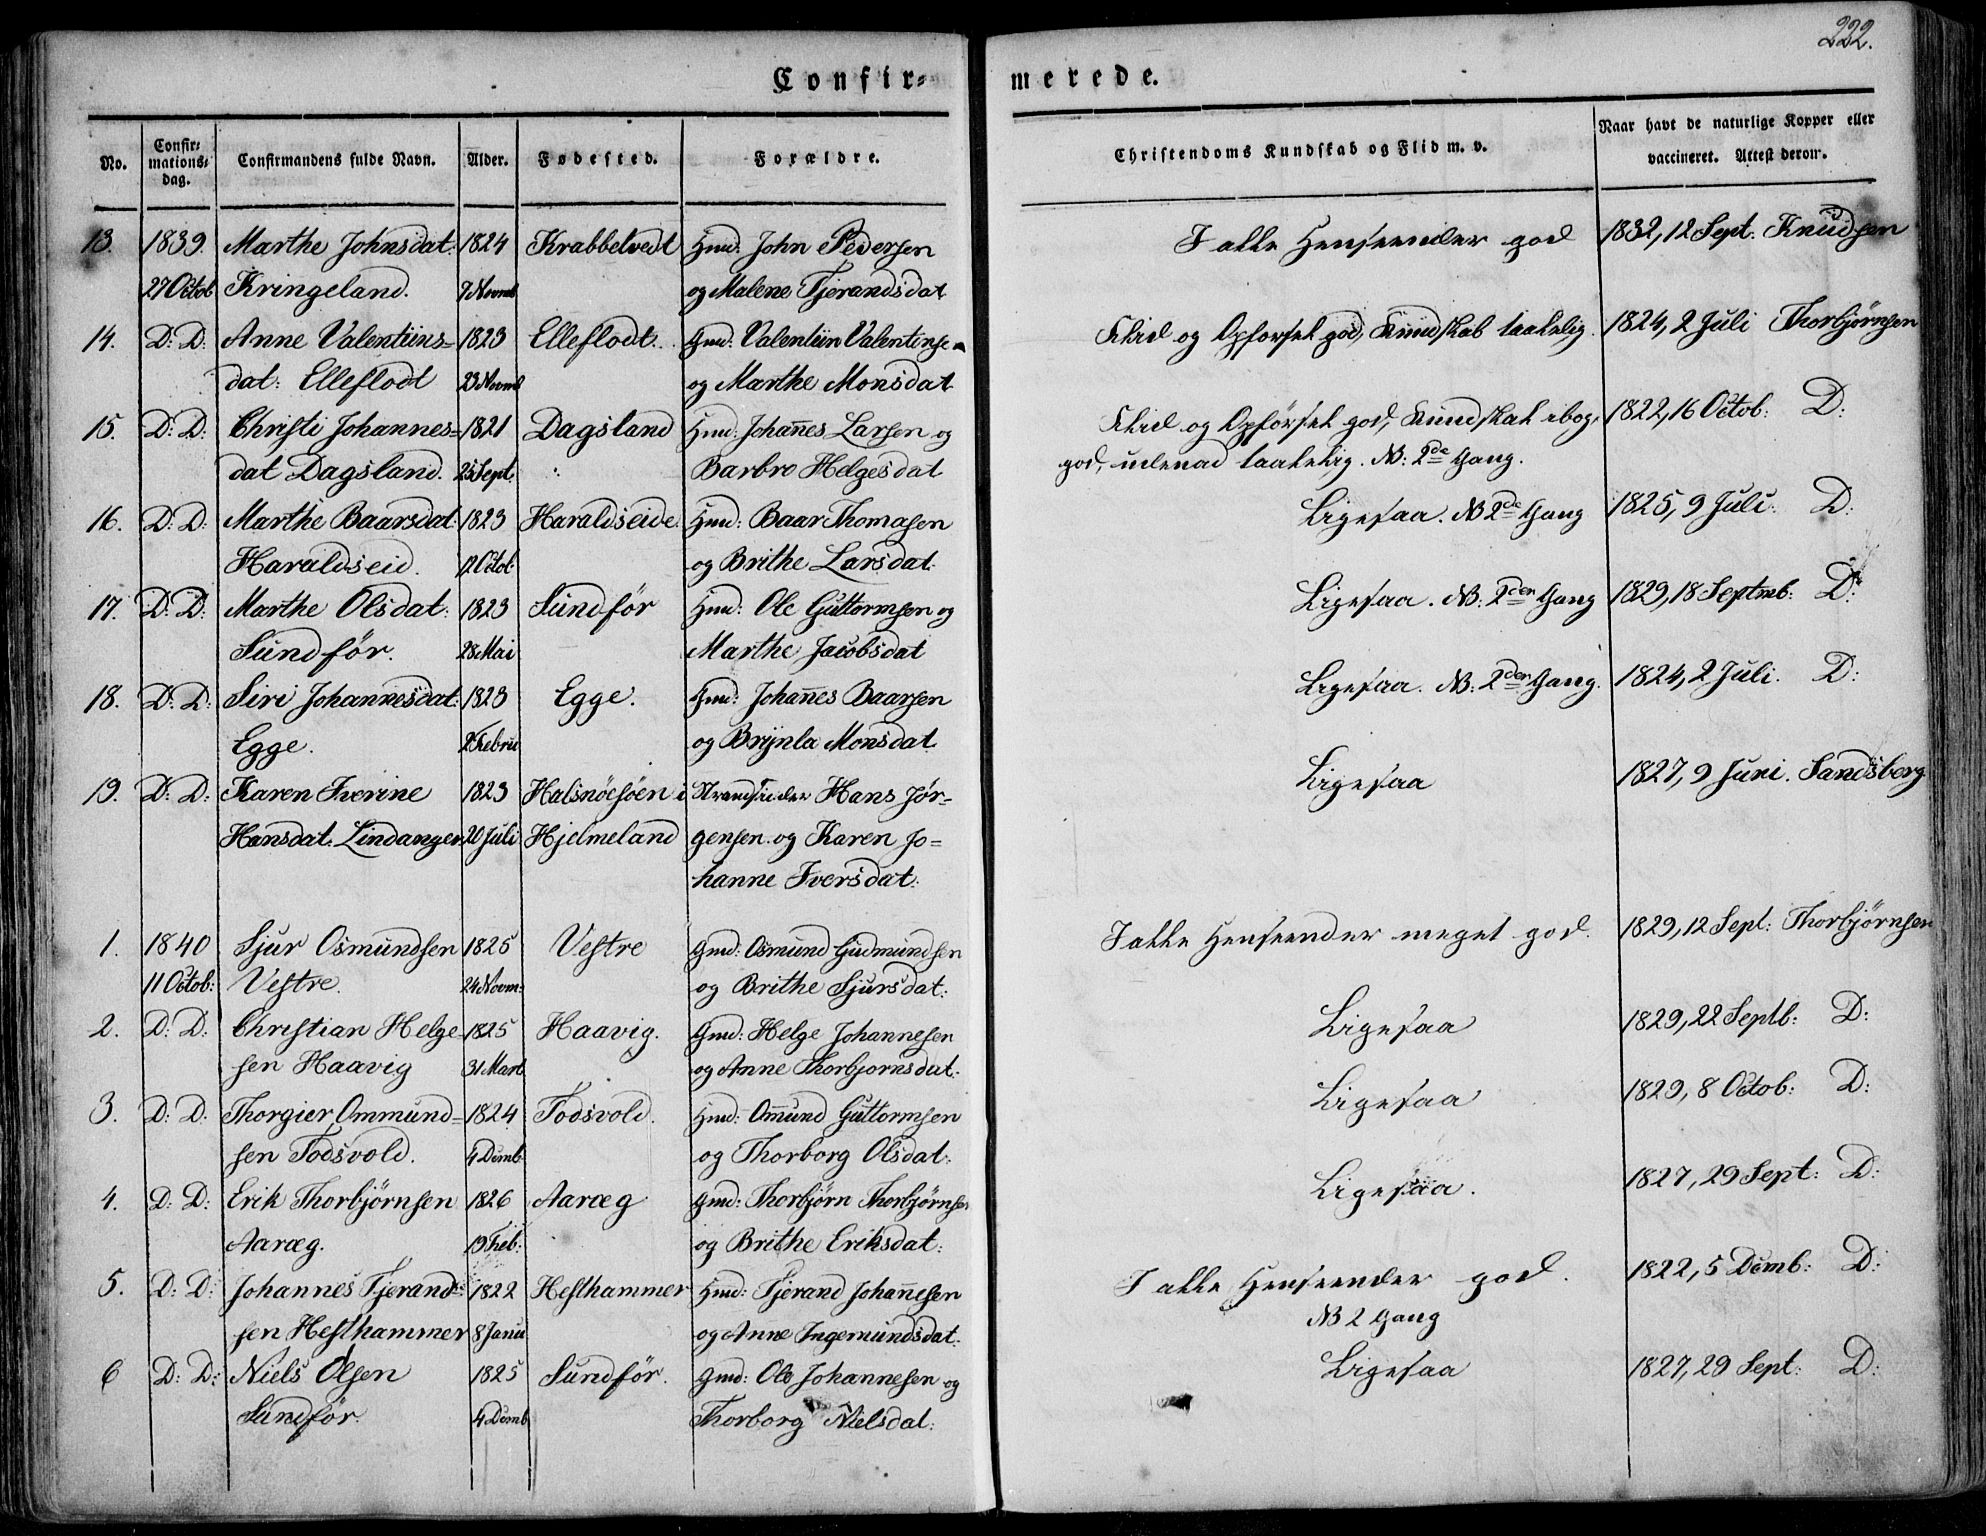 222.
Confir= merede.
No. Confir= mations= dag. Confirmandens fulde Navn. Alder. Fødested. Forældre. Christendoms Kundskab og Flid m. v. Naar havt de naturlige Kopper eller vaccineret. Attest derom.
13. 1839. Marthe Johnsdat: 1824 Krabbetvedt Hmd: John Pedersen I alle Henseender god 1832, 12 Sept: Knudsen
27 Octob Kringeland. 7 Novmb og Malene Tjerandsdat
14. D: D: Anne Valentiins= 1823 Elleflodt. Gmd: Valentiin Valentinsen Flid og Opførsel god, Kundskab taalelig. 1824, 2 Juli Thorbjørnsen
dat: Elleflodt 23 Novmb og Marthe Monsdat
15. D: D: Christi Johannes= 1821 Dagsland Hmd: Joh̅anes Larsen og Flid og Opførsel god, Kundskab ibog, 1822, 16 Octob: D:
dat Dagsland. 25 Sept. Barbro Helgesdat god, udenad taalelig. NB: 2de Gang.
16. D: D: Marthe Baarsdat 1823 Haraldseide Hmd: Baar Thomasen Ligesaa. NB 2de Gang 1825, 9 Juli: D:
Haraldseid. 12 Octob: og Brithe Larsdat:
17. D: D: Marthe Olsdat: 1823 Sundför Hmd: Ole Guttormsen og Ligesaa. NB: 2den Gang 1829, 18 Septmb: D:
Sundför. 28 Mai Marthe Jacobsdat
18. D: D: Siri Johannesdat: 1823 Egge. Gmd: Joha̅nes Baarsen Ligesaa. NB: 2den Gang. 1824, 2 Juli. D:
Egge. og Brynla Monsdat
19. D: D: Karen Iverine 1823 Halsnöesöen i Strandsidder Hans Jör= Ligesaa 1827, 9 Juni. Sandsberg
Hansdat: Lindanger 20 Juli Hjelmeland gensen og Karen Jo=
hanne Iversdat:
1. 1840 Sjur Osmundsen 1825 Vestre Gmd: Osmund Gudmundsen I alle Henseender meget god. 1829, 12 Sept: Thorbjørnsen
11 Octob: Vestre. 24 Novm: og Brithe Sjursdat:
2. D: D: Christian Helge 1825 Haavig. Gmd: Helge Johannesen Ligesaa 1829, 22 Septb: D:
sen Haavig 31 Mart og Anne Thorbjornsdat:
3. D: D: Thorgier Ommund= 1824 Todsvold. Hmd: Om̅und Guttormsen Ligesaa 1829, 8 Octob: D:
sen Todsvold. 4 Demb og Thorborg Olsdat:
4. D: D: Erik Thorbjörnsen 1826 Aaræg Gmd: Thorbjørn Thorbjørnsen Ligesaa. 1827, 29 Sept: D:
Aaræg. 19 Feb: og Brithe Eriksdat:
5. D: D: Johannes Tjerand= 1822 Hesthammer Hmd: Tjerand Joha̅nesen I alle Henseender god. 1822, 5 Demb: D:
sen Hesthammer 8 Janu og Anne Ingemundsdat: NB 2 Gang
6 D: D: Niels Olsen 1825 Sundför. Gmd: Ole Johannesen og Ligesaa 1827, 29 Sept: D:
Sundför. 4 Demb Thorborg Nielsdat: